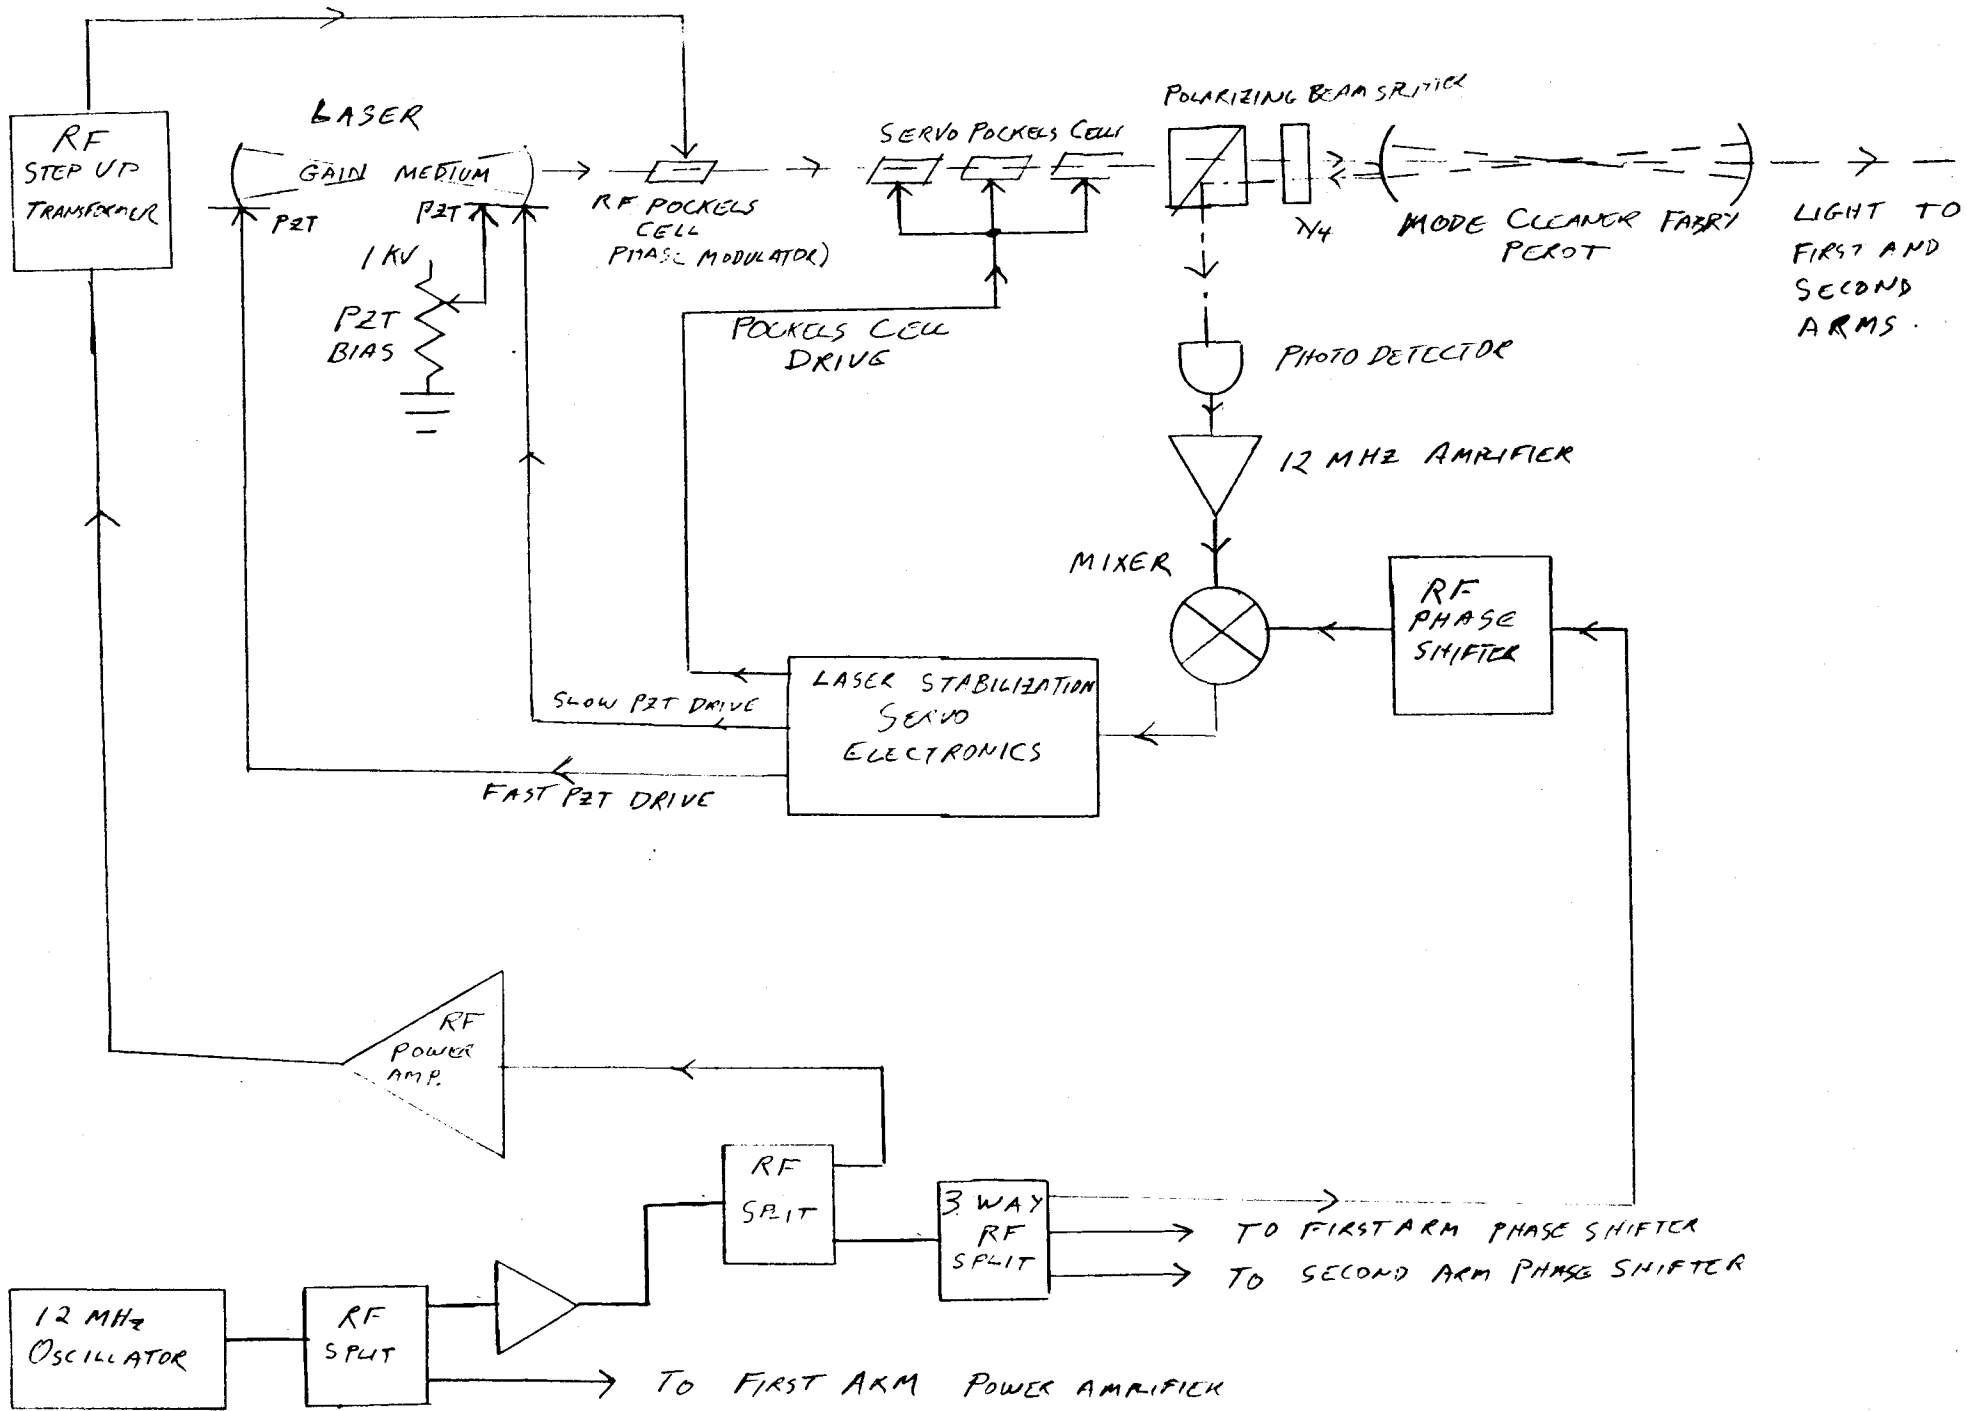 LASER
RF
STEP UP
TRANSFORMER
GAIN MEDIUM
PZT
PZT
1 KV
PZT
BIAS
RF POCKELS
CELL
PHASE MODULATOR)
SERVO POCKELS CELLS
POLARIZING BEAM SPLITTER
λ/4
MODE CLEANER FABRY
PEROT
LIGHT TO
FIRST AND
SECOND
ARMS.
POCKELS CELL
DRIVE
PHOTO DETECTOR
12 MHz AMPLIFIER
MIXER
RF
PHASE
SHIFTER
LASER STABILIZATION
SERVO
ELECTRONICS
SLOW PZT DRIVE
FAST PZT DRIVE
RF
POWER
AMP.
RF
SPLIT
3 WAY
RF
SPLIT
TO FIRST ARM PHASE SHIFTER
TO SECOND ARM PHASE SHIFTER
12 MHz
OSCILLATOR
RF
SPLIT
TO FIRST ARM POWER AMPLIFIER